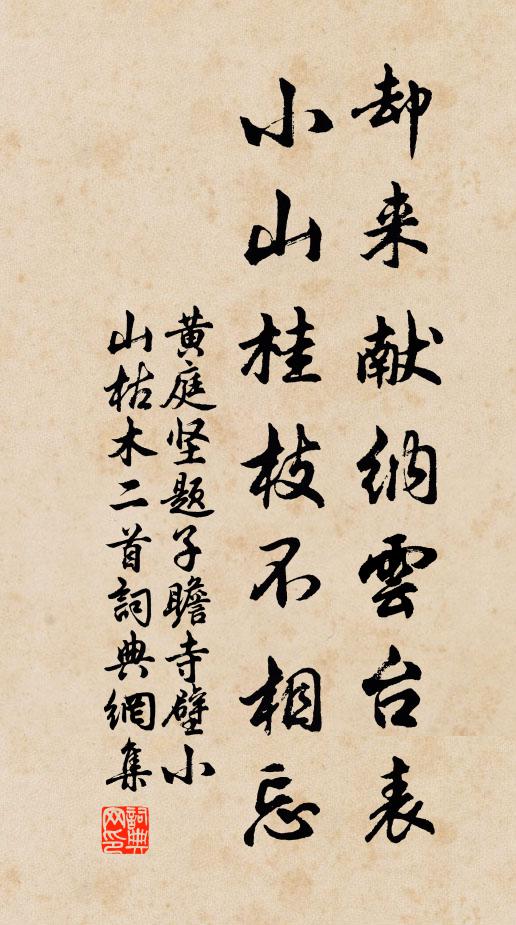 却来献纳雲台表
小山桂枝不相忘
黄庭坚题子瞻寺壁小
山枯木二首詞典網集
詞典
网印